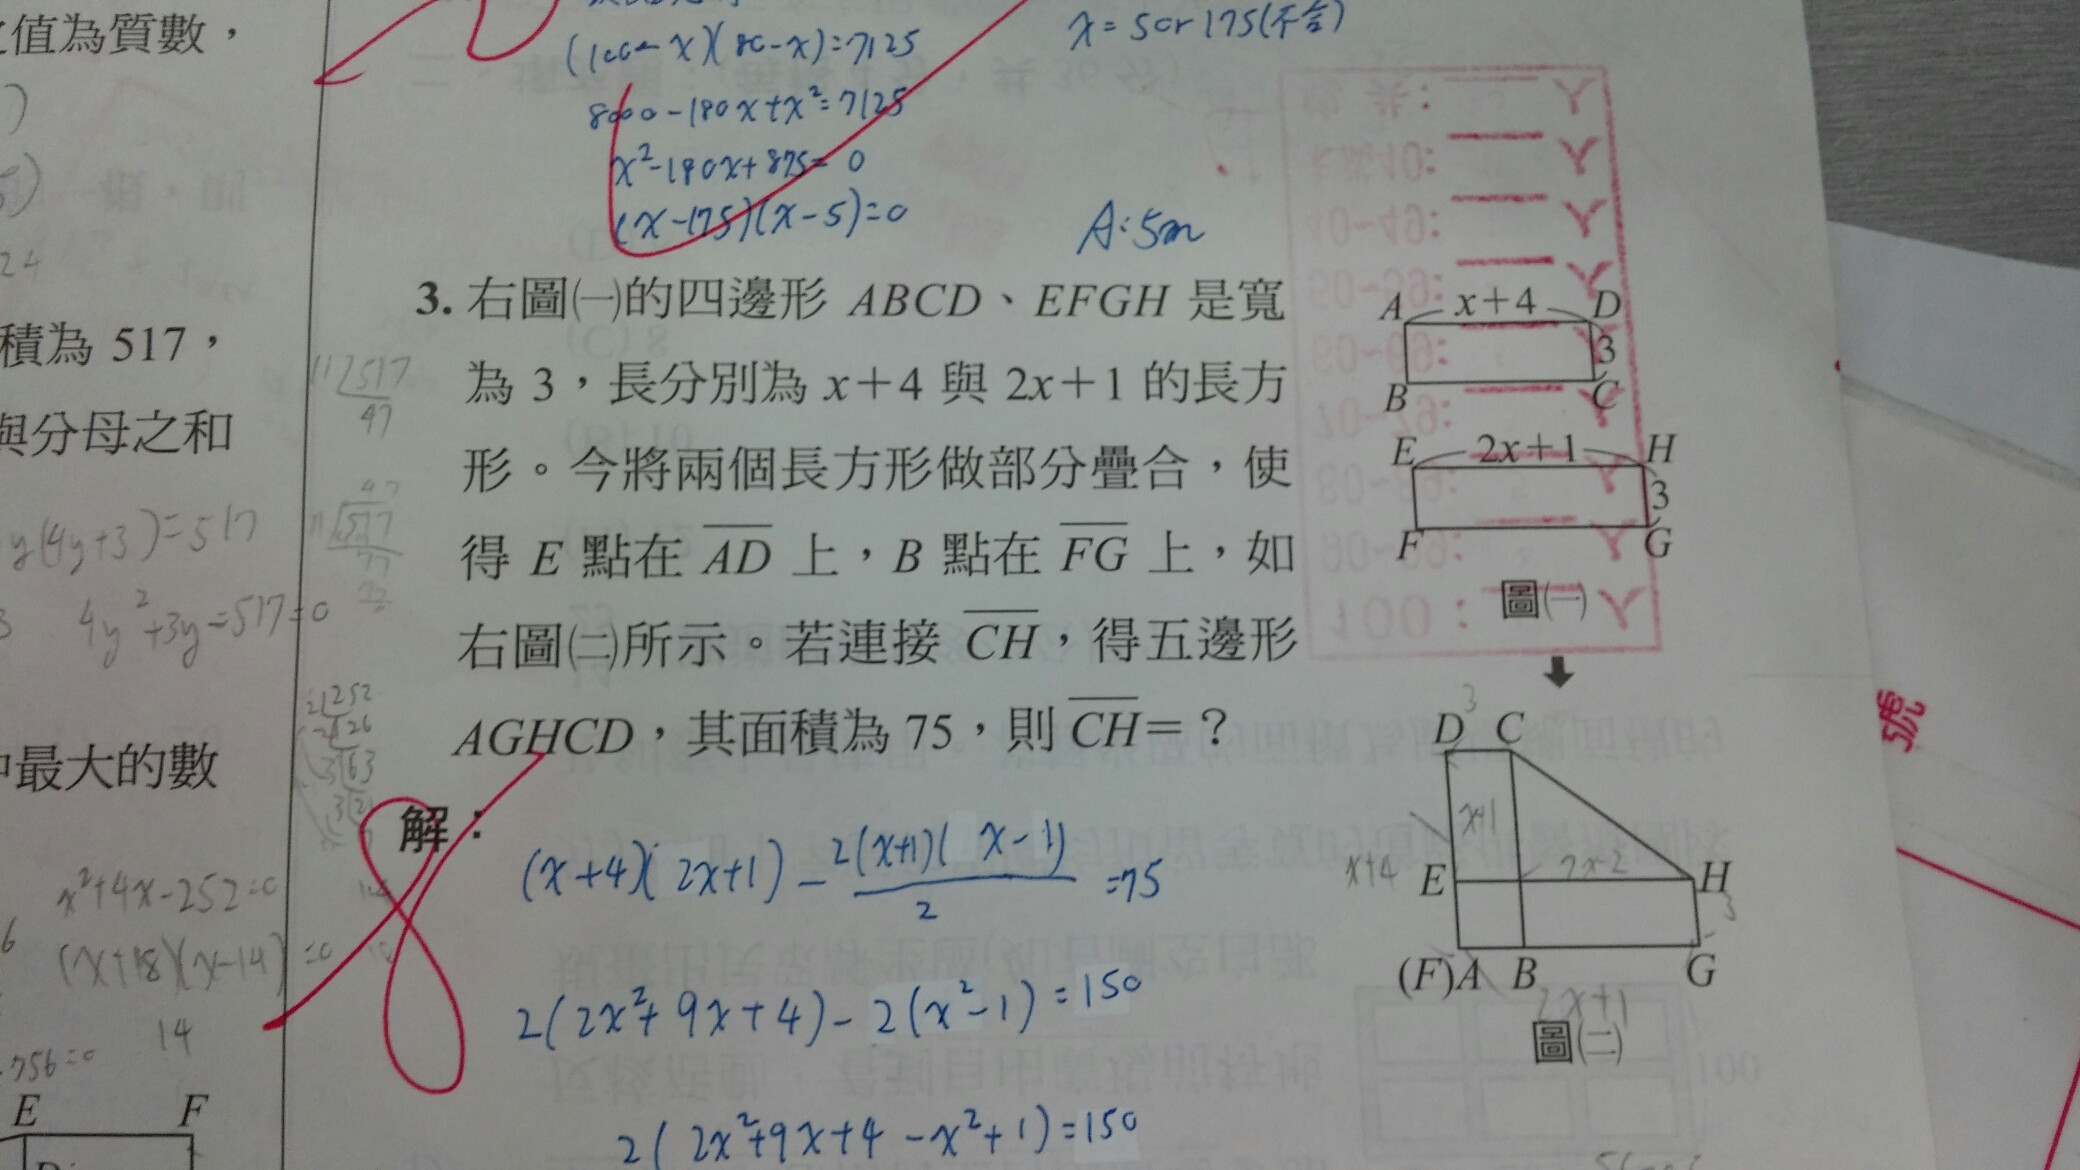 之值為質數，
24
積為 517，
與分母之和
y(4y+3)=517
4y²+3y=517=0
中最大的數
x²+4x-252=0
(x+18)(x-14)=0
14
756=0
E F
11 517
47
2 252
2 126
3 63
3 21
(100-x)(80-x)=7125
8000-180x+x²=7125
x²-180x+875=0
(x-175)(x-5)=0
x=5or175(不合)
A:5m
3. 右圖㈠的四邊形 ABCD、EFGH 是寬
為 3，長分別為 x+4 與 2x+1 的長方
形。今將兩個長方形做部分疊合，使
得 E 點在 AD 上，B 點在 FG 上，如
右圖㈡所示。若連接 CH，得五邊形
AGHCD，其面積為 75，則 CH=？
解：
(x+4)(2x+1)-2(x+1)(x-1)/2=75
2(2x²+9x+4)-2(x²-1)=150
2(2x²+9x+4-x²+1)=150
A x+4 D
3
B C
E 2x+1 H
3
F G
圖㈠
3
D C
x+1
x+4 E 2x-2 H
3
(F)A B G
2x+1
圖㈡
號